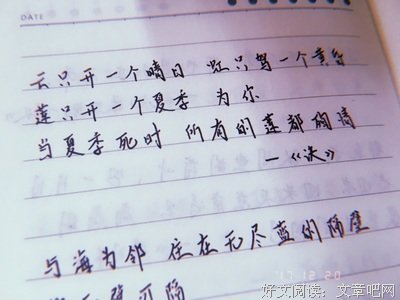 DATE
云只开一个晴日 虹只驾一个黄昏
莲只开一个夏季 为你
当夏季死时 所有的莲都殉情
—《诀》
与海为邻 住在无尽蓝的隔壁
壁可隔
'17 12 20
好文阅读:文章吧网